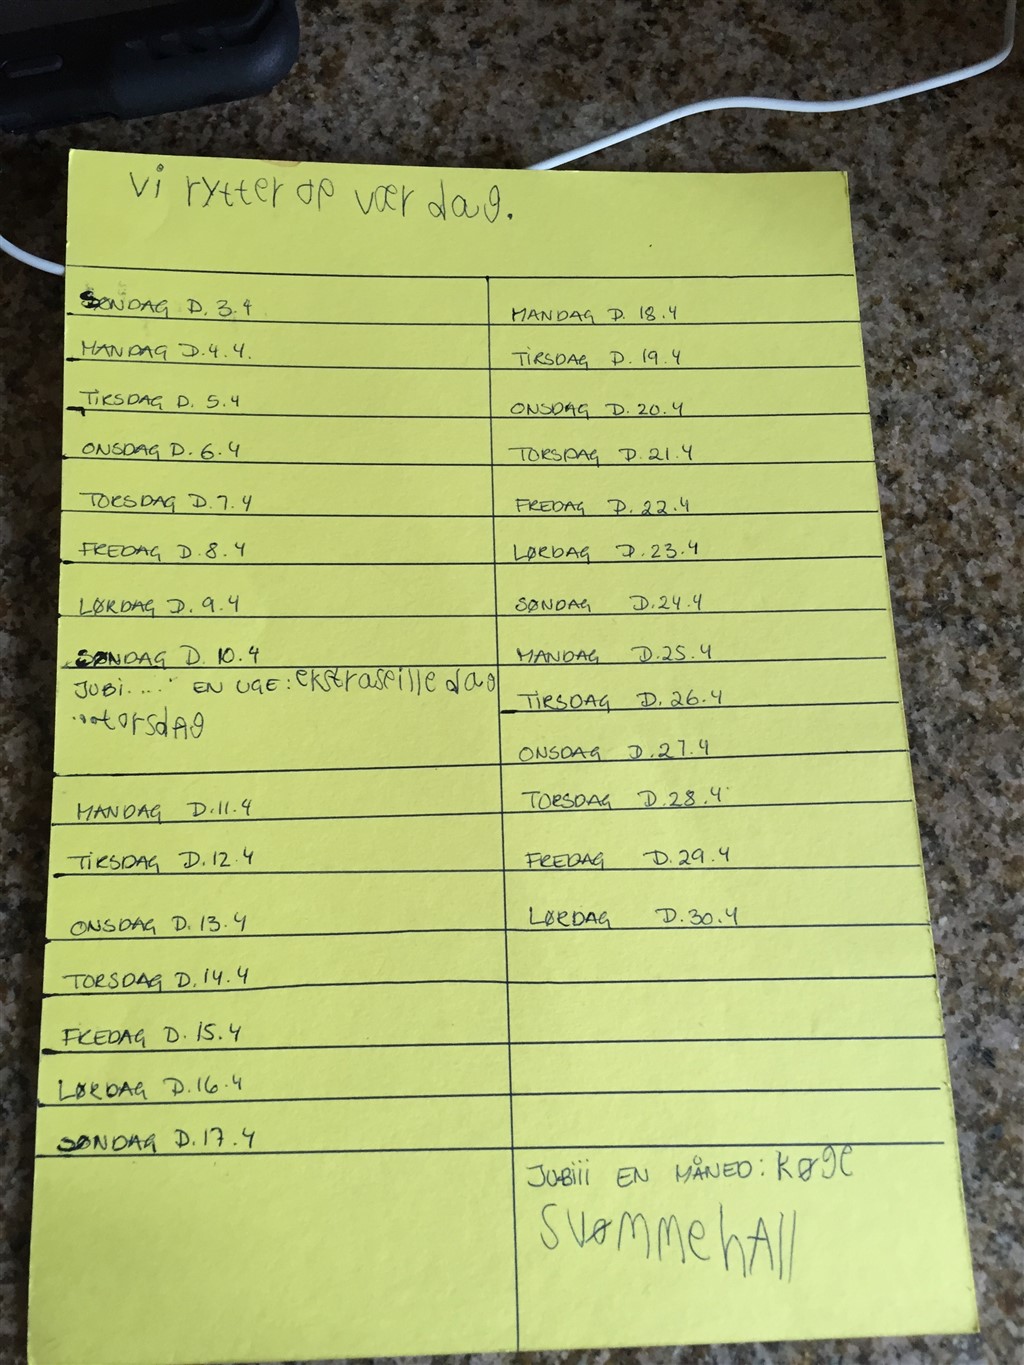 vi rytter op vær dag.
SØNDAG D. 3.4
MANDAG D.4.4.
TIRSDAG D. 5.4
ONSDAG D. 6.4
TORSDAG D.7.4
FREDAG D.8.4
LØRDAG D. 9.4
SØNDAG D. 10.4
JUBI.... EN UGE: ekstraseille dag
torsdAg
MANDAG D.11.4
TIRSDAG D.12.4
ONSDAG D.13.4
TORSDAG D.14.4
FREDAG D.15.4
LØRDAG D.16.4
SØNDAG D.17.4
MANDAG D. 18.4
TIRSDAG D. 19.4
ONSDAG D. 20.4
TORSDAG D.21.4
FREDAG D. 22.4
LØRDAG D.23.4
SØNDAG D.24.4
MANDAG D.25.4
TIRSDAG D.26.4
ONSDAG D.27.4
TORSDAG D.28.4
FREDAG D.29.4
LØRDAG D.30.4
JUBiii EN MÅNED: Køge
SvømmehAll